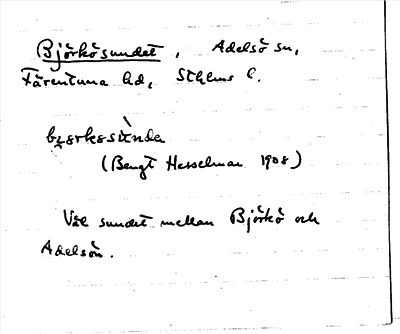 Björkösundet, Adelsö sn,
Färentuna hd, Sthlms l.
bjɶrkɶsùndə
(Bengt Hesselman 1908)
Väl sundet mellan Björkö och
Adelsön.